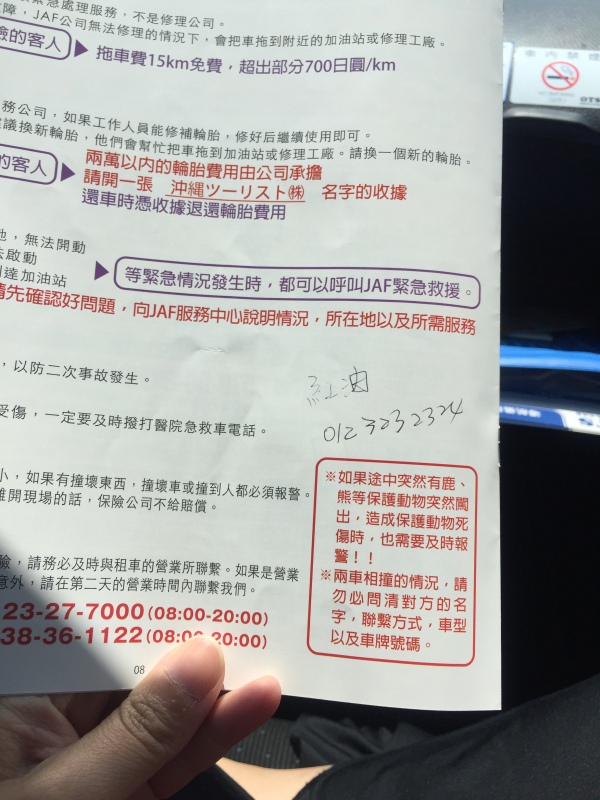 緊急處理服務，不是修理公司。
障，JAF公司無法修理的情況下，會把車拖到附近的加油站或修理工廠。
險的客人
拖車費15km免費，超出部分700日圓/km
務公司，如果工作人員能修補輪胎，修好后繼續使用即可。
建議換新輪胎，他們會幫忙把車拖到加油站或修理工廠。請換一個新的輪胎。
的客人
兩萬以內的輪胎費用由公司承擔
請開一張 沖縄ツーリスト㈱ 名字的收據
還車時憑收據退還輪胎費用
地，無法開動
法啟動
到達加油站
等緊急情況發生時，都可以呼叫JAF緊急救援。
請先確認好問題，向JAF服務中心說明情況，所在地以及所需服務
，以防二次事故發生。
紅油
受傷，一定要及時撥打醫院急救車電話。
012 3232324
小，如果有撞壞東西，撞壞車或撞到人都必須報警。
離開現場的話，保險公司不給賠償。
※如果途中突然有鹿、
熊等保護動物突然闖
出，造成保護動物死
傷時，也需要及時報
警！！
※兩車相撞的情況，請
勿必問清對方的名
字，聯繫方式，車型
以及車牌號碼。
險，請務必及時與租車的營業所聯繫。如果是營業
意外，請在第二天的營業時間內聯繫我們。
23-27-7000(08:00-20:00)
38-36-1122(08:00-20:00)
08
車內禁煙
OTS